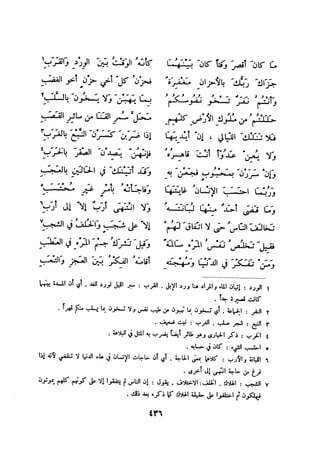 ما كان أقصر وقتاً كان بينهما كأنه الوقت بين الورد والقرب
جزاك ربك بالأحزان مغفرة فحزن كل أخي حزن أخو الغضب
وأنتم نفر تسخو نفوسكم بما يهبن ولا يسخون بالسلب
حللتم من ملوك الأرض كلهم محل سمر القنا من سائر القصب
فلا تنلك الليالي ، إن أيديها إذا ضربن كسرن النبع بالغرب
ولا يعن عدواً أنت قاهره فإنهن يصدن الصقر بالخرب
وإن سررن بمحبوب فجعن به وقد أتينك في الحالين بالعجب
وربما احتسب الإنسان غايتها وفاجأته بأمر غير محتسب
وما قضى أحد منها لبانته ولا انتهى أرب إلا إلى أرب
تخالف الناس حتى لا اتفاق لهم إلا على شجب والخلف في الشجب
فقيل تخلص نفس المرء سالمة وقيل تشرك جسم المرء في العطب
ومن تفكر في الدنيا ومهجته أقامه الفكر بين العجز والتعب
١ الورد : إتيان الماء والمراد هنا ورد الإبل . القرب : سير الليل لورد الغد . أي أن المدة بينهما
كانت قصيرة جداً .
٢ النفر : الجماعة . أي تسخون بما تهبون عن طيب نفس ولا تسخون بما يسلب منكم قهراً .
٣ النبع : شجر صلب . الغرب : نبت ضعيف .
٤ الخرب : ذكر الحبارى وهو طائر أيضاً يضرب به المثل في البلاهة .
٥ احتسب الشيء : كان في حسابه .
٦ اللبانة والأرب : كلاهما بمعنى الحاجة . أي أن حاجات الإنسان في هذه الدنيا لا تنقضي لأنه إذا
فرغ من حاجة انتهى إلى أخرى .
٧ الشجب : الهلاك . الخلف : الاختلاف . يقول : إن الناس لم يتفقوا إلا على كونهم كلهم يموتون
فيهلكون ثم اختلفوا على حقيقة الهلاك كما ذكره بعد ذلك .
٤٣٦